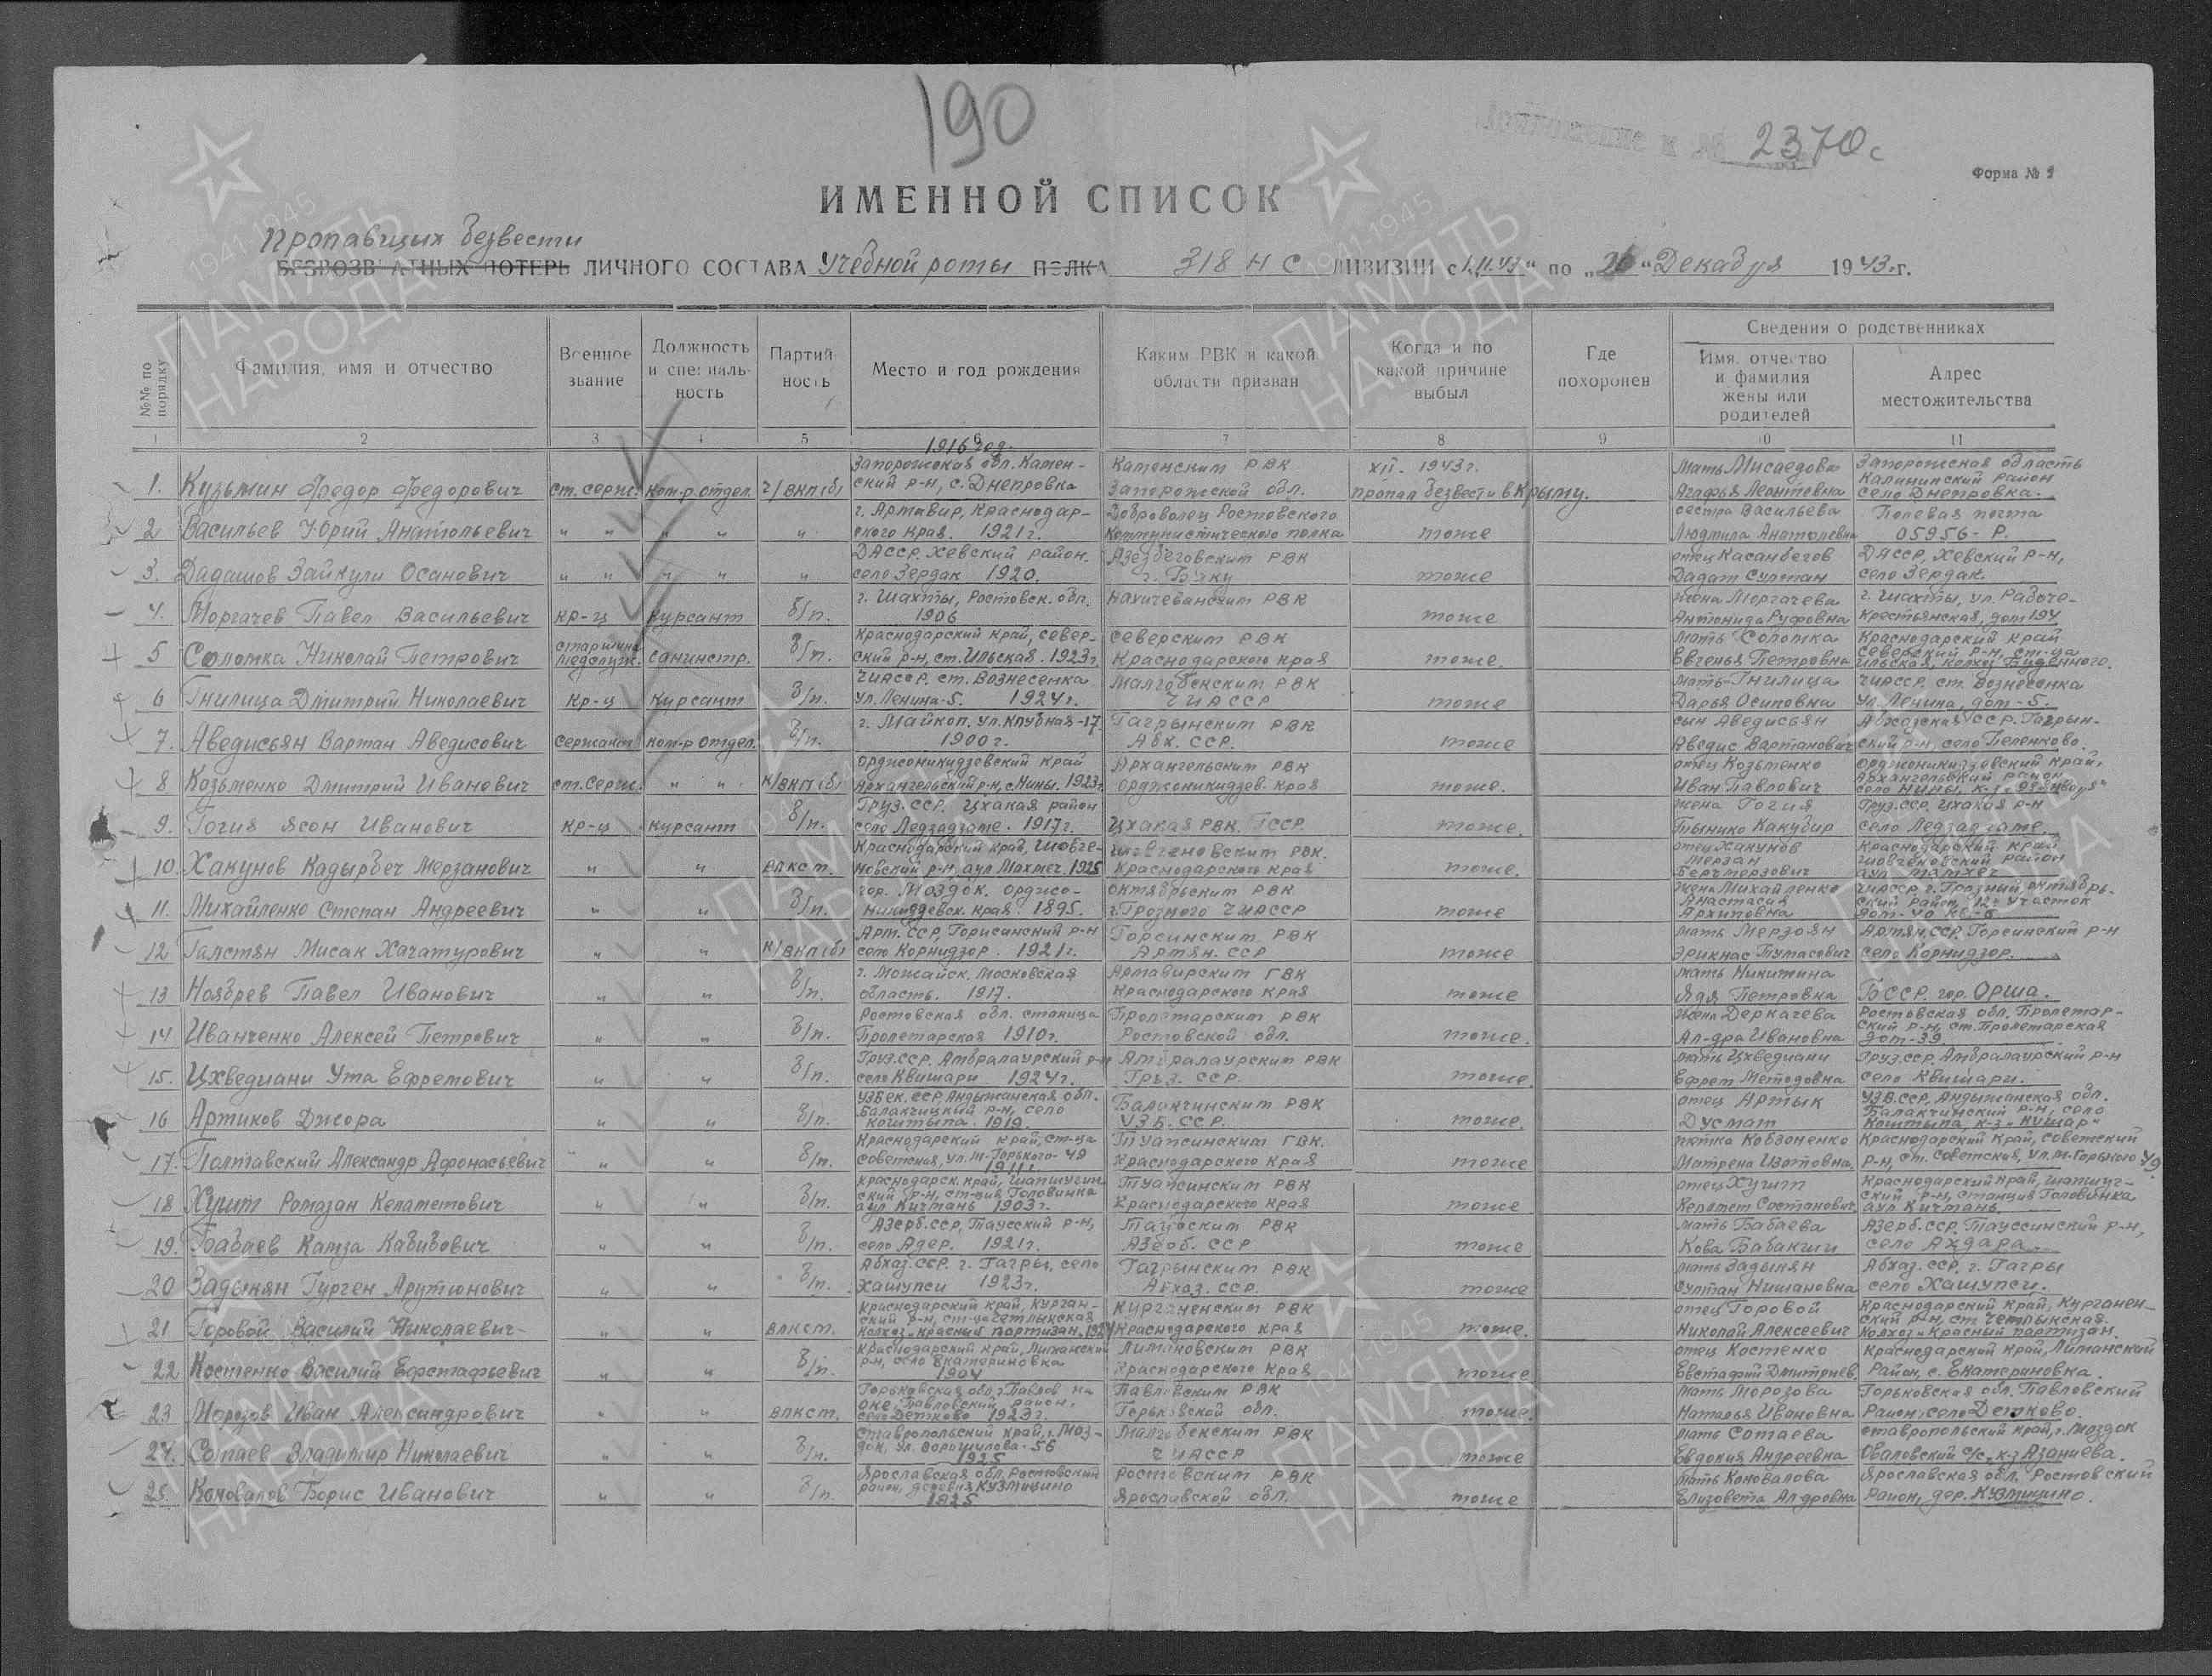 190
2370с
Форма № 2
ИМЕННОЙ СПИСОК
Пропавших безвести
БЕЗВОЗВРАТНЫХ ПОТЕРЬ ЛИЧНОГО СОСТАВА Учебной роты ПОЛКА 318 Н С ДИВИЗИИ с 1.11.43 " по „ 26 " Декабря 1943 г.
№№ по порядку
Фамилия, имя и отчество
Военное звание
Должность и специальность
Партийность
Место и год рождения
Каким РВК и какой области призван
Когда и по какой причине выбыл
Где похоронен
Сведения о родственниках
Имя, отчество и фамилия жены или родителей
Адрес местожительства
1 2 3 4 5 6 7 8 9 10 11
1. Кузьмин Федор Федорович ст. серж. ком-р отдел. ч/ВКП(б) 1916 год. Запорожская обл. Каменский р-н, с. Днепровка Каменским РВК Запорожской обл. XII - 1943 г. пропал безвести в Крыму. мать Мисаедова Агафья Леонтевна Запорожская область Калининский район село Днепровка.
2 Васильев Юрий Анатольевич " " " " " г. Армавир, Краснодарского края. 1921 г. Доброволец Ростовского Коммунистического полка тоже сестра Васильева Людмила Анатолевна Полевая почта 05956-Р.
3. Дадашов Зайкули Осанович " " " " " ДАССР. Хевский район. село Зердак 1920. Азезбеговским РВК г. Баку тоже отец Касанбегов Дадат Султан ДАССР, Хевский р-н, село Зердак.
4. Моргачев Павел Васильевич кр-ц курсант б/п. г. Шахты, Ростовск. обл. 1906 Нахичеванским РВК тоже жена Моргачева Антонида Руфовна г. Шахты, ул. Рабоче-Крестьянская, дом 194
5 Соломка Николай Петрович старшина медслуж. санинстр. б/п. Краснодарский край, северский р-н, ст. Ильская. 1923 г. северским РВК Краснодарского края тоже. мать Соломка Евгенья Петровна Краснодарский край северский р-н, ст-ца Ильская, колхоз Буденного.
6 Гнилица Дмитрий Николаевич кр-ц курсант б/п. ЧИАССР. ст. Вознесенка ул. Ленина-5. 1924 г. Малгобекским РВК ЧИАССР тоже мать Гнилица Дарья Осиповна ЧИАССР, ст. Вознесенка ул. Ленина, дом-5.
7. Аведисьян Вартан Аведисович сержант ком-р отдел. б/п. г. Майкоп. ул. Клубная-17. 1900 г. Гагрынским РВК Абх. ССР. тоже сын Аведисьян Аведис Вартанович Абхазская ССР. Гагрынский р-н, село Пеленково.
8 Козьменко Дмитрий Иванович ст. серж. " " к/ВКП(б) орджоникидзевский край Архангельский р-н, с. Нины. 1923 г. Архангельским РВК Орджоникидзев. края тоже. отец Козьменко Иван Павлович орджоникидзевский край, Архангельский район село Нины, к-з
9. Гогия Ясон Иванович кр-ц курсант б/п. Груз. ССР. Цхакая район село Ледзадзаме. 1917 г. Цхакая РВК. ГССР. тоже. жена Гогия Какубир Груз. ССР. Цхакая р-н село Ледзадзаме.
10. Хакунов Кадырбеч Мерзанович " " влксм. Краснодарский край, Шовгеновский р-н, аул Мамхег. 1925 Шовгеновским РВК. Краснодарского края тоже. отец Хакунов Мерзан Краснодарский край Шовгеновский район аул Мамхег
11. Михайленко Степан Андреевич " " б/п. гор. Моздок. Орджоникидзевск. края. 1895. октябрьским РВК г. Грозного ЧИАССР тоже жена Михайленко Анастасия Архиповна ЧИАССР, г. Грозный, октябрьский район, 12й участок дом-40 кв-6
12 Галстян Мисак Хачатурович " " к/ВКП(б) Арм. ССР, Горисинский р-н село Корнидзор. 1921 г. Горсинским РВК Армян. ССР тоже мать Мерзоян Эрикнас Тумасович Армян. ССР, Горсинский р-н село Корнидзор.
13 Ноябрев Павел Иванович " " б/п. г. Можайск, Московская область. 1917. Армавирским ГВК Краснодарского края тоже мать Никитина Ядя Петровна БССР. гор. Орша.
14 Иванченко Алексей Петрович " " б/п. Ростовская обл. станица Пролетарская 1910 г. Пролетарским РВК Ростовской обл. тоже. жена Деркачева Ал-дра Ивановна Ростовская обл. Пролетарский р-н, ст. Пролетарская дом-39
15. Цхведиани Ута Ефремович " " б/п. Груз. ССР. Амбралаурский р-н село Квишари 1924 г. Амбралаурским РВК Груз. ССР тоже мать Цхведиани Ефрем Методовна Груз. ССР, Амбралаурский р-н село Квишари.
16 Артиков Джора " " б/п. Узбек. ССР, Андижанская обл. Балакчицкий р-н, село Коштыпа. 1919. Балакчинским РВК УЗБ. ССР. тоже. отец Артык Дусмат УЗБ. ССР, Андижанская обл. Балакчинский р-н, село Коштыпа, к-з „Кушар"
17. Полтавский Александр Афонасьевич " " б/п. Краснодарский край, ст-ца советская, ул. М-Горького-49 1911 г. Туапсинским ГВК. Краснодарского края тоже тётка Кобзоненко Матрена Изотовна. Краснодарский край, советский р-н, ст. Советская, ул. М-Горького 49
18 Хушт Ромазан Келаметович " " б/п. Краснодарск. край, Шапшугинский р-н, ст-ция Головинка аул Кичмань 1903 г. Туапсинским РВК Краснодарского края тоже отец Хушт Келомет Состанович Краснодарский край, Шапшугский р-н, станция Головинка аул Кичмань.
19. Бабаев Камза Кабибович " " б/п. Азерб. ССР, Таусский р-н, село Адер. 1921 г. Таузским РВК Азерб. ССР тоже мать Бабаева Кова Бабакиши Азерб. ССР. Тауссинский р-н, село Ахдара.
20 Задынян Гурген Арутюнович " " б/п. Абхаз. ССР. г. Гагры, село Хашупси 1923 г. Гагрынским РВК Абхаз. ССР. тоже мать Задынян Султан Нишановна Абхаз. ССР, г. Гагры село Хашупси.
21 Горовой Василий Николаевич " " влксм. Краснодарский край, Курганский р-н, Колхоз „Красный партизан. 1924 Курганенским РВК Краснодарского края тоже. отец Горовой Николай Алексеевич Краснодарский край, Курганенский р-н, ст. Чемлыкская. Колхоз „Красный партизан.
22 Костенко Василий Евстафьевич " " б/п. Краснодарский край, Лиманский р-н, село Екатериновка 1904 Лимановским РВК Краснодарского края тоже отец Костенко Евстафий Дмитриев. Краснодарский край, Лиманский Район, с. Екатериновка.
23 Морозов Иван Александрович " " влксм. Горьковская обл. г. Павлов на Оке, Павловский район, село Детково 1923 г. Павловским РВК Горьковской обл. тоже. мать Морозова Наталья Ивановна Горьковская обл. Павловский Район, село Детково.
24. Сотаев Владимир Николаевич " " б/п. ставропольский край, г. Моздок, ул. Ворошилова-56 1925 Малгобекским РВК ЧИАССР тоже мать Сотаева Евдокия Андреевна ставропольский край, г. Моздок с/с, к-з Азаниева.
25. Коновалов Борис Иванович " " б/п. Ярославская обл. Ростовский район, деревня Кузмицино 1925 Ростовским РВК Ярославской обл. тоже мать Коновалова Елизовета Ал-дровна Ярославская обл. Ростовский Район, дер. Кузмицино.
ПАМЯТЬ НАРОДА
1941 1945